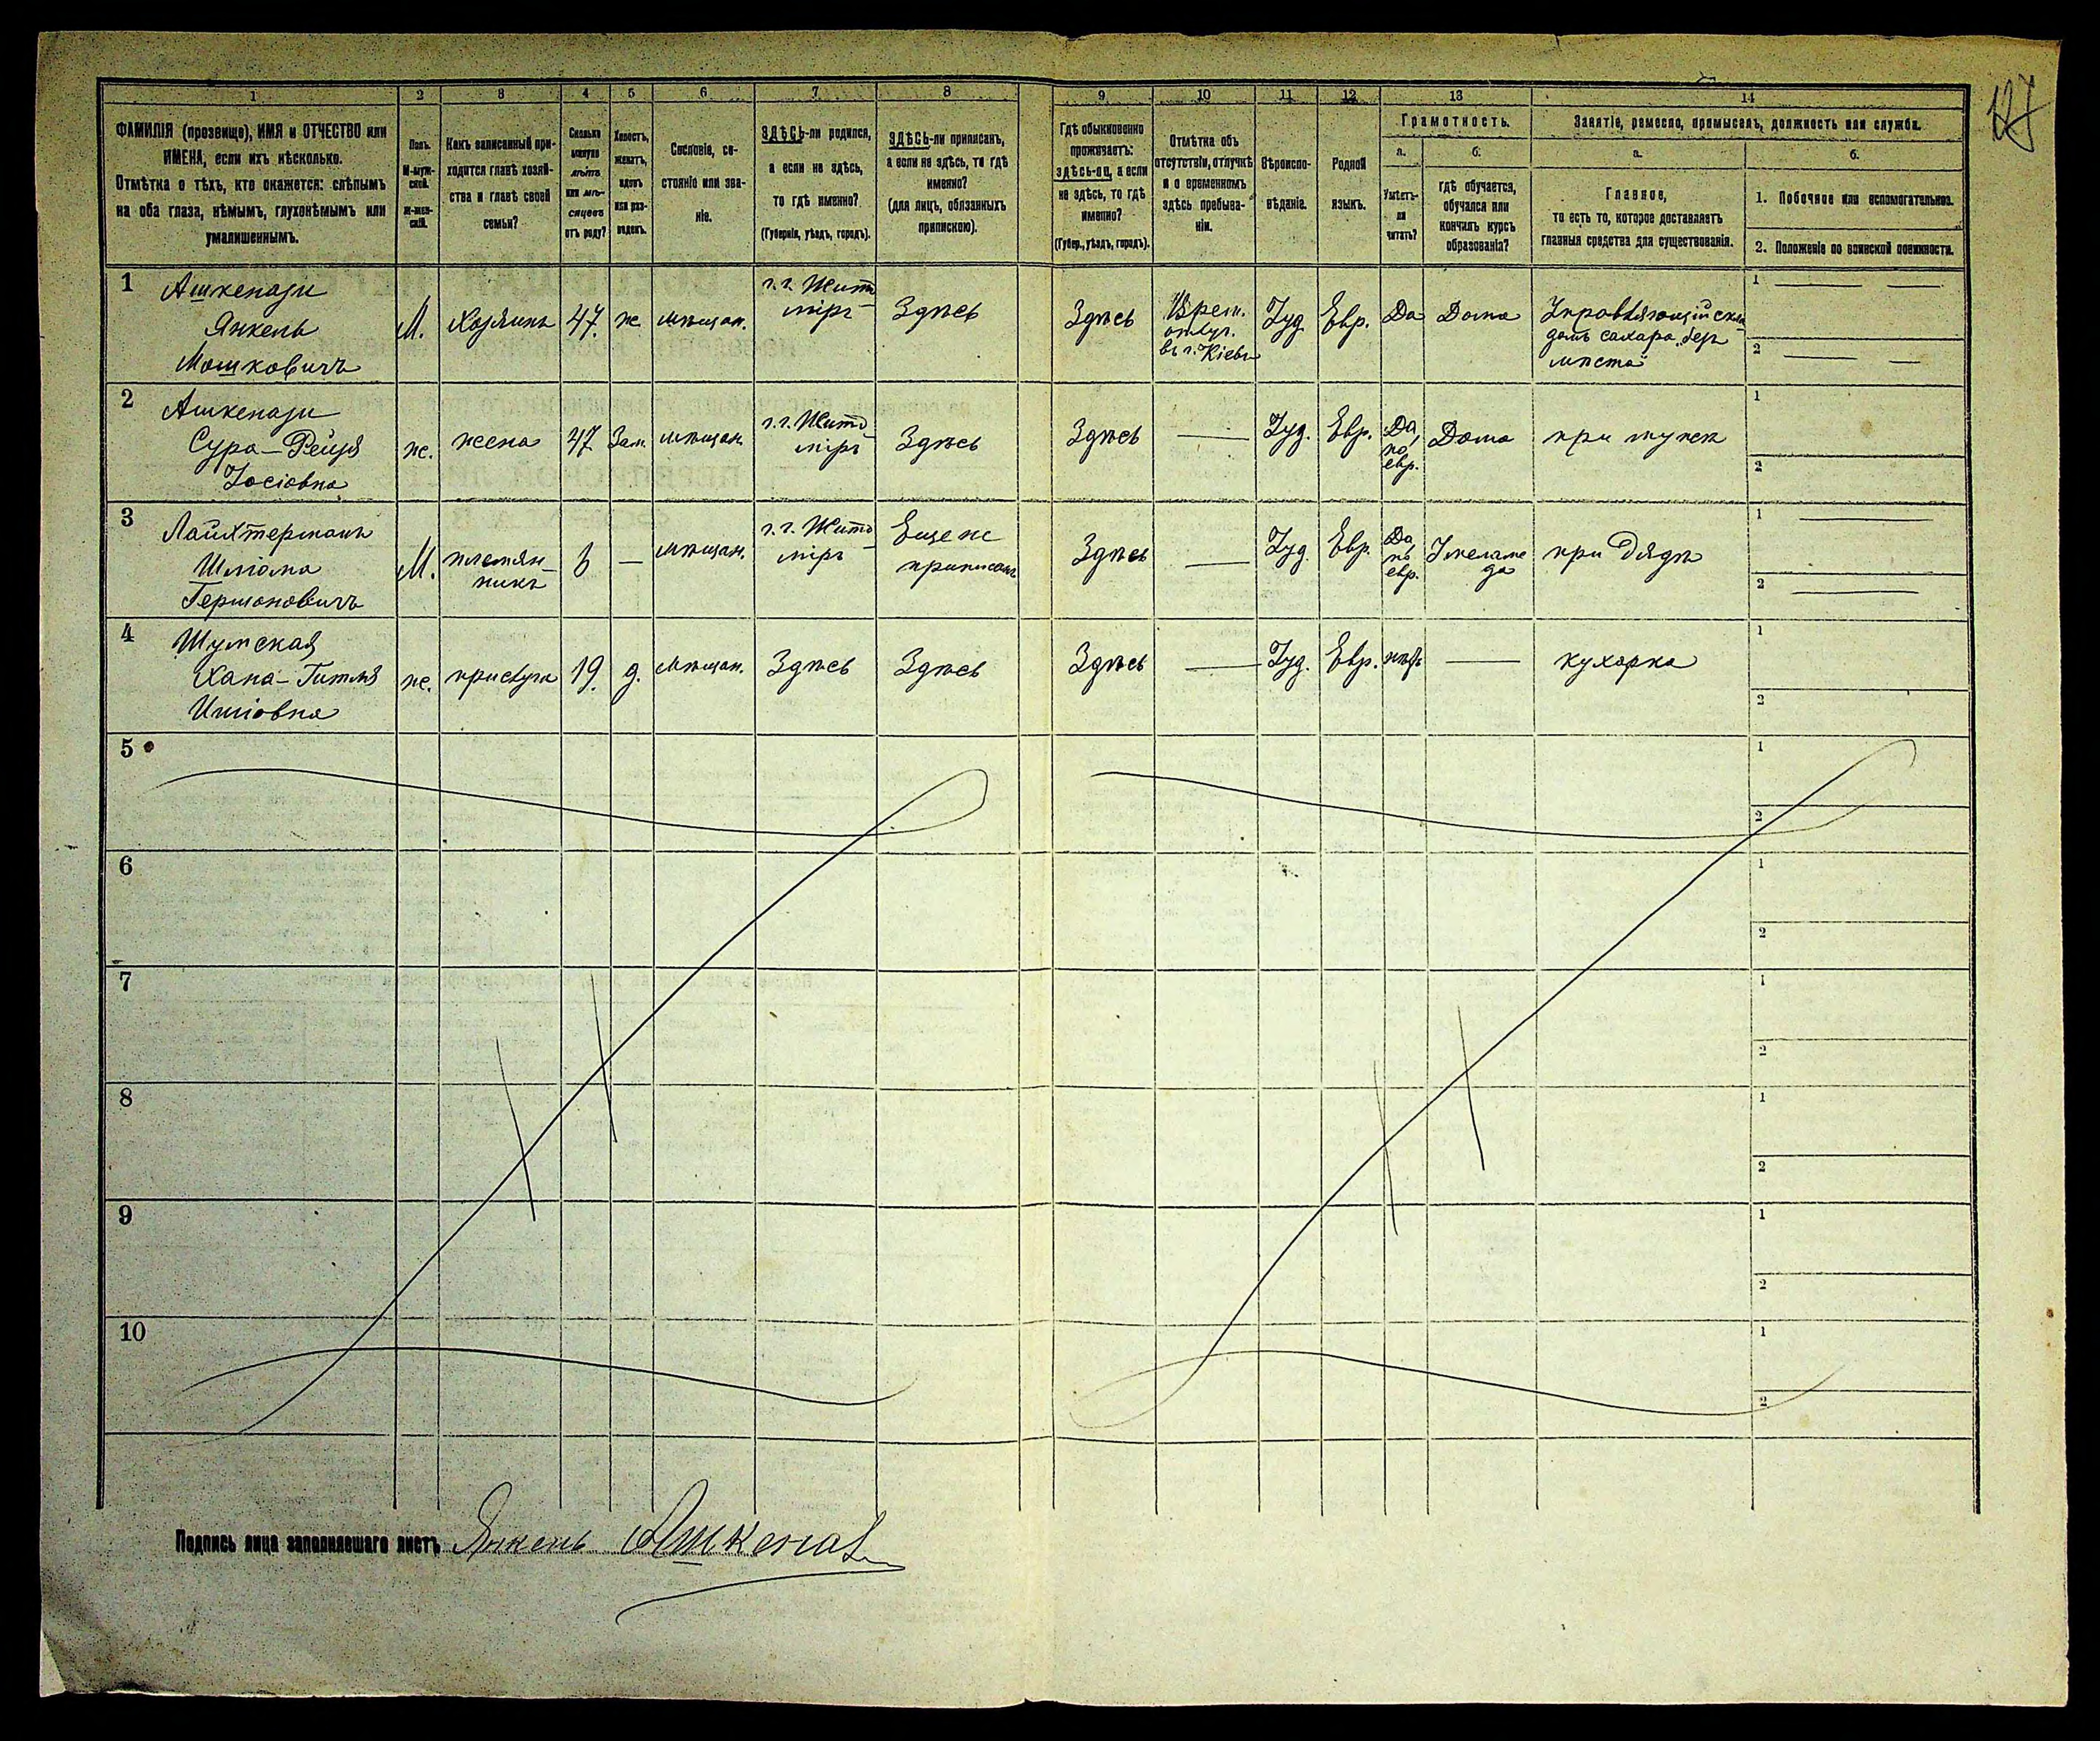 127
1 2 3 4 5 6 7 8 9 10 11 12 13 14
ФАМИЛІЯ (прозвище), ИМЯ и ОТЧЕСТВО или
ИМЕНА, если ихъ нѣсколько.
Отмѣтка о тѣхъ, кто окажется: слѣпымъ
на оба глаза, нѣмымъ, глухонѣмымъ или
умалишеннымъ.
Полъ.
М-муж-
ской.
ж-жен-
скій.
Какъ записанный при-
ходится главѣ хозяй-
ства и главѣ своей
семьи?
Сколько
минуло
лѣтъ
или мѣ-
сяцевъ
отъ роду?
Холостъ,
женатъ,
вдовъ
или раз-
веденъ.
Сословіе, со-
стояніе или зва-
ніе.
ЗДѢСЬ-ли родился,
а если не здѣсь,
то гдѣ именно?
(Губернія, уѣздъ, городъ).
ЗДѢСЬ-ли приписанъ,
а если не здѣсь, то гдѣ
именно?
(для лицъ, обязанныхъ
припискою).
Гдѣ обыкновенно
проживаетъ:
здѣсь-ли, а если
не здѣсь, то гдѣ
именно?
(Губер., уѣздъ, городъ).
Отмѣтка объ
отсутствіи, отлучкѣ
и о временномъ
здѣсь пребыва-
ніи.
Вѣроиспо-
вѣданіе.
Родной
языкъ.
Грамотность.
а.
Умѣетъ-
ли
читать?
б.
гдѣ обучается,
обучался или
кончилъ курсъ
образованія?
Занятіе, ремесло, промыселъ, должность или служба.
а.
Главное,
то есть то, которое доставляетъ
главныя средства для существованія.
б.
1. Побочное или вспомогательное.
2. Положеніе по воинской повинности.
1 Ашкенази
Янкель
Мошковичъ
М.
Хозяинъ
47.
ж.
мѣщан.
г. г. Жито
міръ
Здѣсь
Здѣсь
Врем.
отлуч.
въ г. Кіевъ
Іуд.
Евр.
Да
Дома
Управляющій скла
домъ сахара, безъ
мѣста
1
2
2 Ашкенази
Сура-Рейзя
Іосіовна
ж.
жена
47
Зам.
мѣщан.
г. г. Жито
міръ
Здѣсь
Здѣсь
Іуд.
Евр.
Да,
по
евр.
Дома
при мужѣ
1
2
3 Лайхтерманъ
Шліома
Гершоновичъ
М.
племян-
никъ
мѣщан.
г. г. Жито
міръ
Еще не
приписанъ
Здѣсь
Іуд.
Евр.
Да,
по
евр.
У меламе
да
при дядѣ
1
2
4 Шумская
Хана-Гитля
Иціовна
ж.
прислуга
19.
д.
мѣщан.
Здѣсь
Здѣсь
Здѣсь
Іуд.
Евр.
нѣтъ
кухарка
1
2
5
1
2
6
1
2
7
1
2
8
1
2
9
1
2
10
1
2
Подпись лица заполнившаго листъ Янкель Ашкенази